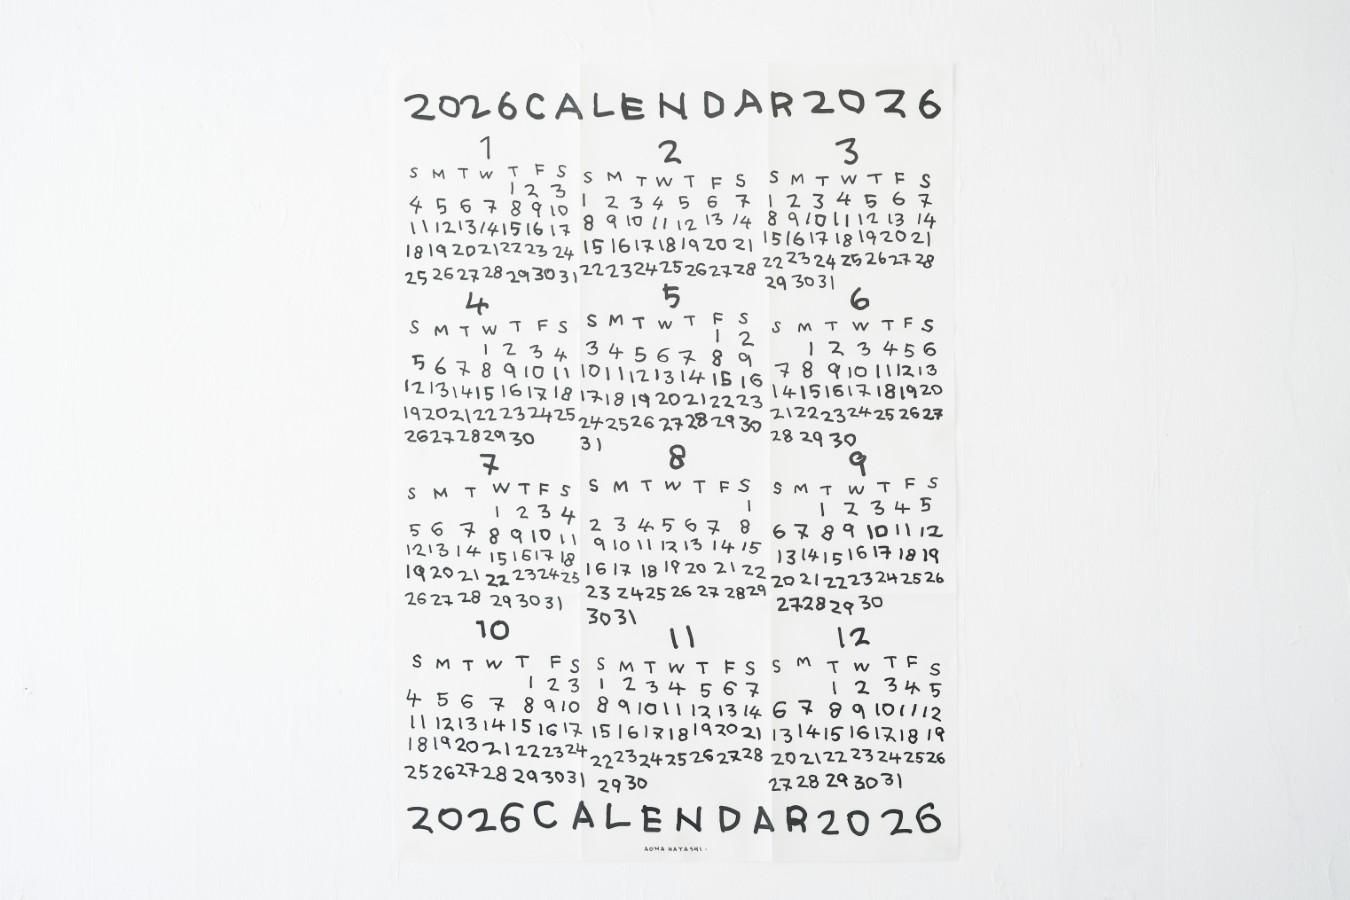 2026 CALENDAR 2026
1
S M T W T F S
1 2 3
4 5 6 7 8 9 10
11 12 13 14 15 16 17
18 19 20 21 22 23 24
25 26 27 28 29 30 31
2
S M T W T F S
1 2 3 4 5 6 7
8 9 10 11 12 13 14
15 16 17 18 19 20 21
22 23 24 25 26 27 28
3
S M T W T F S
1 2 3 4 5 6 7
8 9 10 11 12 13 14
15 16 17 18 19 20 21
22 23 24 25 26 27 28
29 30 31
4
S M T W T F S
1 2 3 4
5 6 7 8 9 10 11
12 13 14 15 16 17 18
19 20 21 22 23 24 25
26 27 28 29 30
5
S M T W T F S
1 2
3 4 5 6 7 8 9
10 11 12 13 14 15 16
17 18 19 20 21 22 23
24 25 26 27 28 29 30
31
6
S M T W T F S
1 2 3 4 5 6
7 8 9 10 11 12 13
14 15 16 17 18 19 20
21 22 23 24 25 26 27
28 29 30
7
S M T W T F S
1 2 3 4
5 6 7 8 9 10 11
12 13 14 15 16 17 18
19 20 21 22 23 24 25
26 27 28 29 30 31
8
S M T W T F S
1
2 3 4 5 6 7 8
9 10 11 12 13 14 15
16 17 18 19 20 21 22
23 24 25 26 27 28 29
30 31
9
S M T W T F S
1 2 3 4 5
6 7 8 9 10 11 12
13 14 15 16 17 18 19
20 21 22 23 24 25 26
27 28 29 30
10
S M T W T F S
1 2 3
4 5 6 7 8 9 10
11 12 13 14 15 16 17
18 19 20 21 22 23 24
25 26 27 28 29 30 31
11
S M T W T F S
1 2 3 4 5 6 7
8 9 10 11 12 13 14
15 16 17 18 19 20 21
22 23 24 25 26 27 28
29 30
12
S M T W T F S
1 2 3 4 5
6 7 8 9 10 11 12
13 14 15 16 17 18 19
20 21 22 23 24 25 26
27 28 29 30 31
2026 CALENDAR 2026
AOMA HAYASHI.